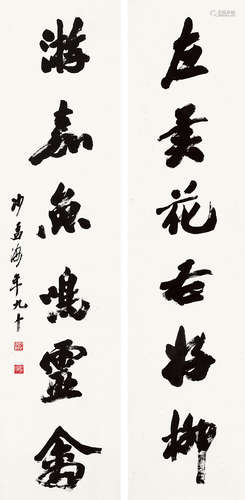 左美花右好柳
游嘉魚鳴靈禽
沙孟海年九十